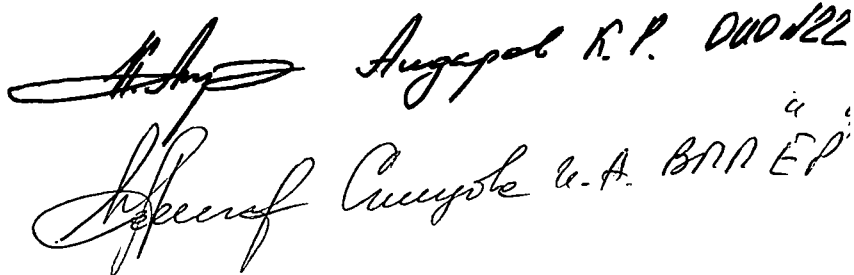 Айдаров К. Р. ОИО №22
Синцова И. А. ВПП "ЕР"